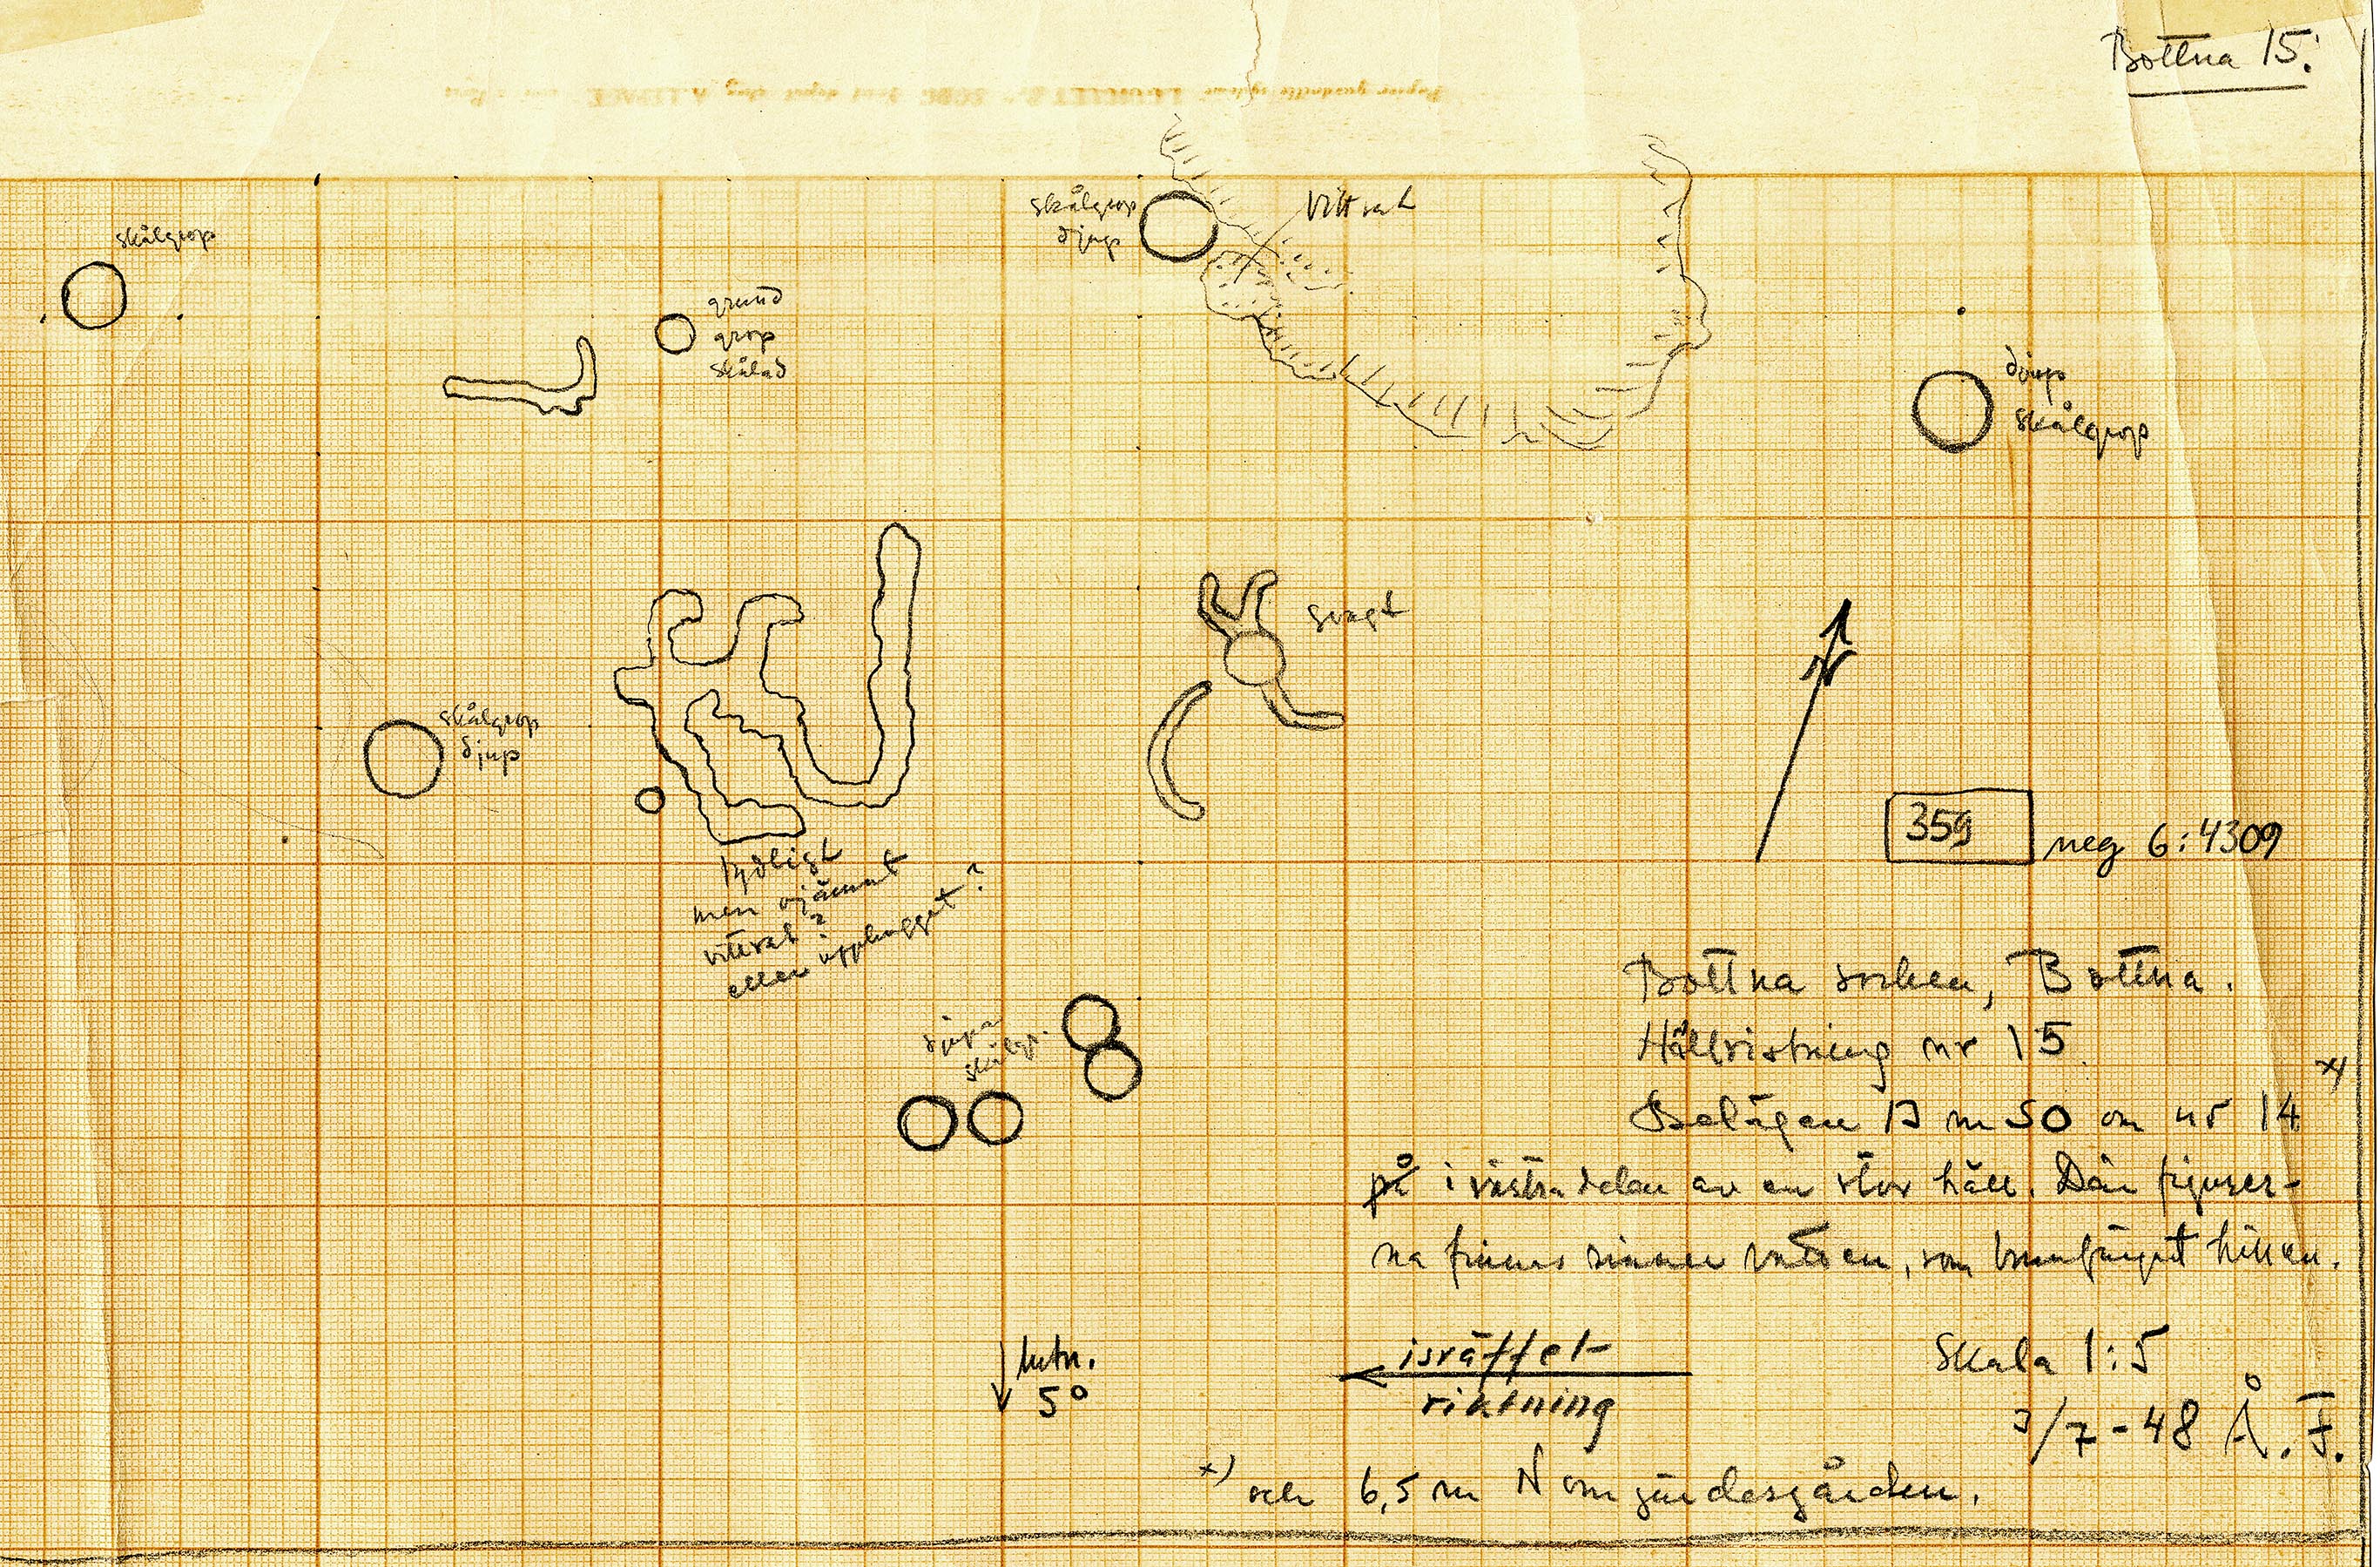 Bottna 15.
skålgrop
skålgrop
djup
Vittrat
grund
grop
skålad
djup
skålgrop
svagt
skålgrop
djup
N
359
neg 6:4309
tydligt
men ojämnt
vittrat?
eller upphugget?
djupa
skålgr.
Bottna socken, Bottna.
Hällristning nr 15.
Belägen 13 m SO om nr 14 x)
på i västra delen av en stor häll. Där figurer-
na finnes rinner vatten, som brunfärgat hällen.
lutn.
5°
isräffel-
riktning
Skala 1:5
3/7-48 Å.F.
x) och 6,5 m N om gärdesgården.